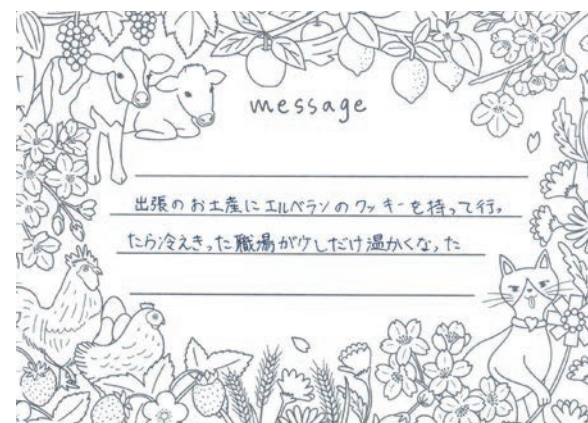 message
出張のお土産にエルベランのクッキーを持って行っ
たら冷えきった職場が少しだけ温かくなった